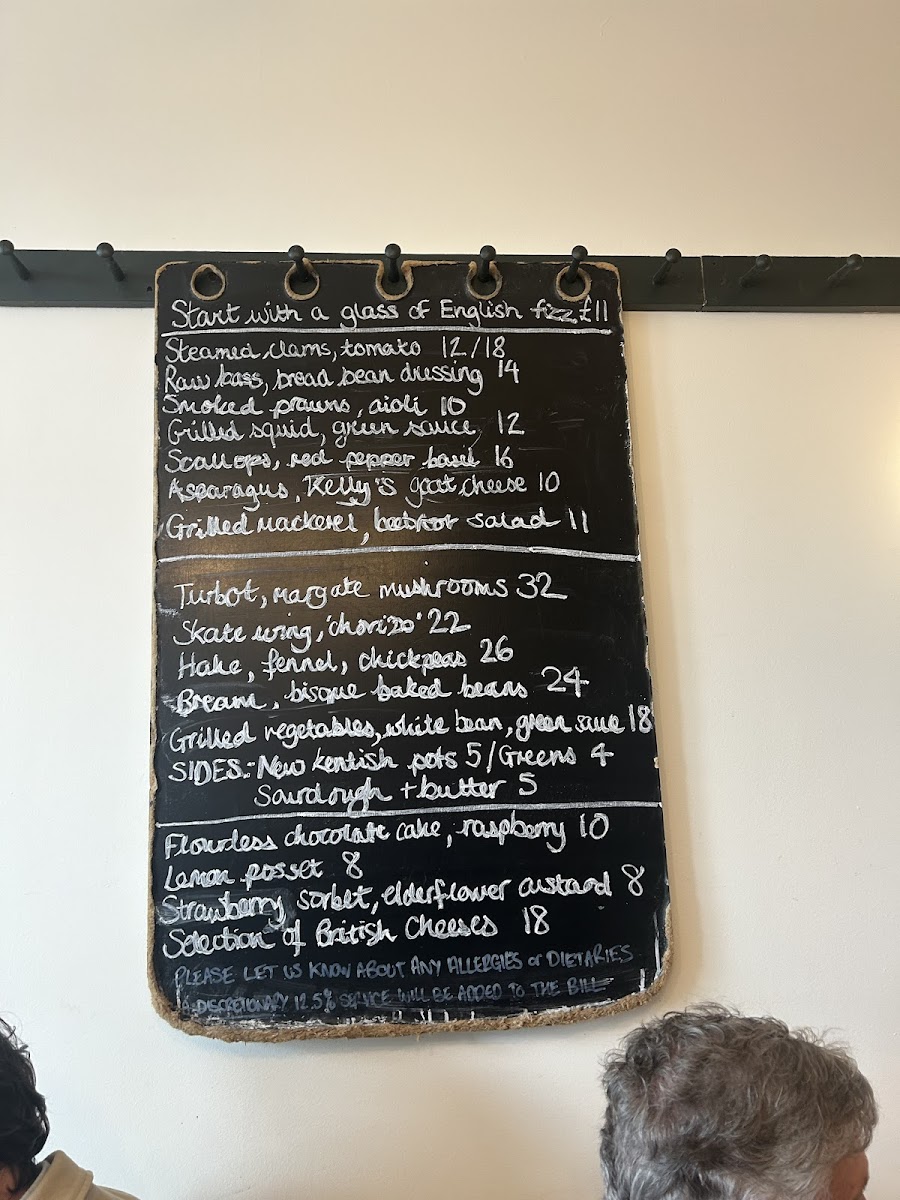 Start with a glass of English fizz £11
Steamed clams, tomato 12/18
Raw bass, broad bean dressing 14
Smoked prawns, aioli 10
Grilled squid, green sauce 12
Scallops, red pepper basil 16
Asparagus, Kelly's goat cheese 10
Grilled mackerel, salad 11
Turbot, margate mushrooms 32
Skate wing, 'chorizo' 22
Hake, fennel, chickpeas 26
Bream, bisque baked beans 24
Grilled vegetables, white bean, green sauce 18
SIDES:- New kentish pots 5/Greens 4
Sourdough + butter 5
Flourless chocolate cake, raspberry 10
Lemon posset 8
Strawberry sorbet, elderflower custard 8
Selection of British Cheeses 18
PLEASE LET US KNOW ABOUT ANY ALLERGIES or DIETARIES
A DISCRETIONARY 12.5% SERVICE WILL BE ADDED TO THE BILL